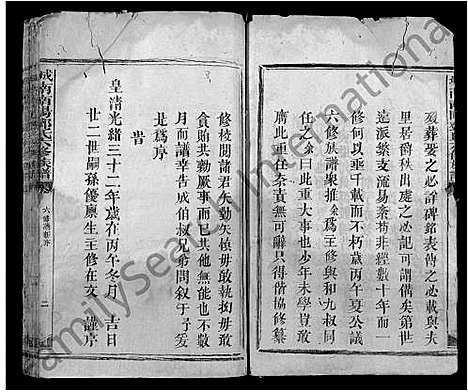 歿葬娶之必詳碑銘表傳之必載與夫
里居爵秩出處之必記可謂備矣第世
遠派繁支流易紊苟非經數十年而一
修難以垂千載而不朽歲丙午夏公議
六修族譜衆推爲主修與和九叔同
任之徐曰此重大事也少年未學豈敢
當此任奈責無可辭只得偕協修纂
修校閱諸君矢勤矢慎毋敢執拗毋敢
貪賄共勷厥事而已其他無能也不數
月而議幸告成伯叔兄弟問叙于予爰
是爲序
皇清光緒三十二年歲在丙午冬月 吉日
廿二世嗣孫優廩生主修在文 謹序
城南南陽鄧氏六修族譜
六修譜新序
二
FamilySearch International